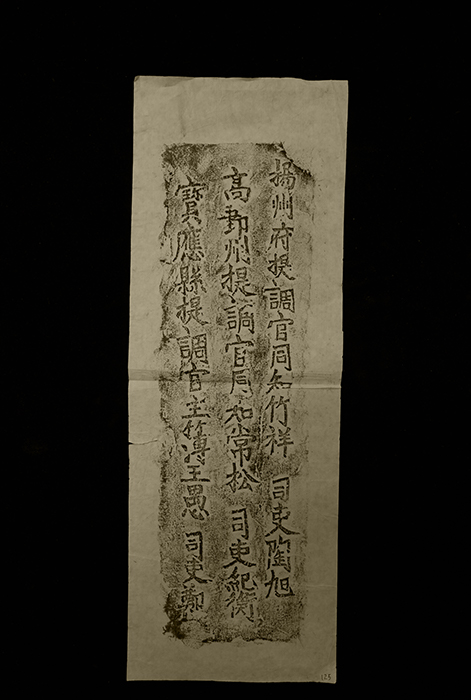 揚州府提調官同知竹祥 司吏陶旭
高郵州提調官同知常松 司吏紀衡
寳應縣提調官主簿王愚 司吏鄭